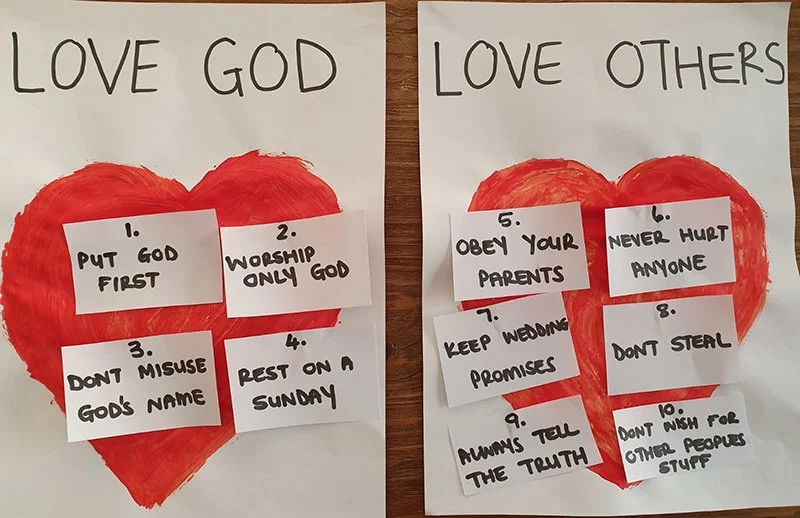 LOVE GOD
1.
PUT GOD
FIRST
2.
WORSHIP
ONLY GOD
3.
DONT MISUSE
GOD'S NAME
4.
REST ON A
SUNDAY
LOVE OTHERS
5.
OBEY YOUR
PARENTS
6.
NEVER HURT
ANYONE
7.
KEEP WEDDING
PROMISES
8.
DONT STEAL
9.
ALWAYS TELL
THE TRUTH
10.
DONT WISH FOR
OTHER PEOPLES
STUFF